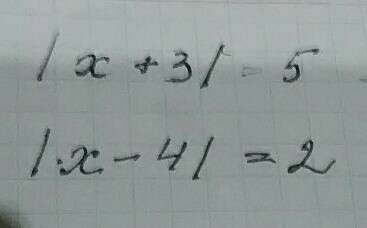 |x + 3| = 5
|x - 4| = 2